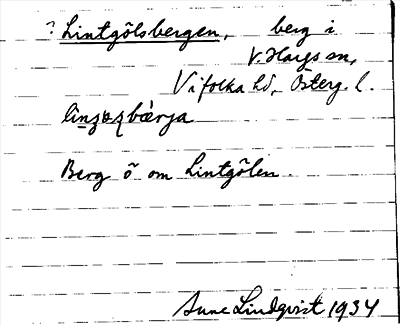 ? Lintgölsbergen, berg i
V. Hargs sn,
Vifolka hd, Österg. l.
Berg ö om Lintgölen.
Sune Lindqvist 1934